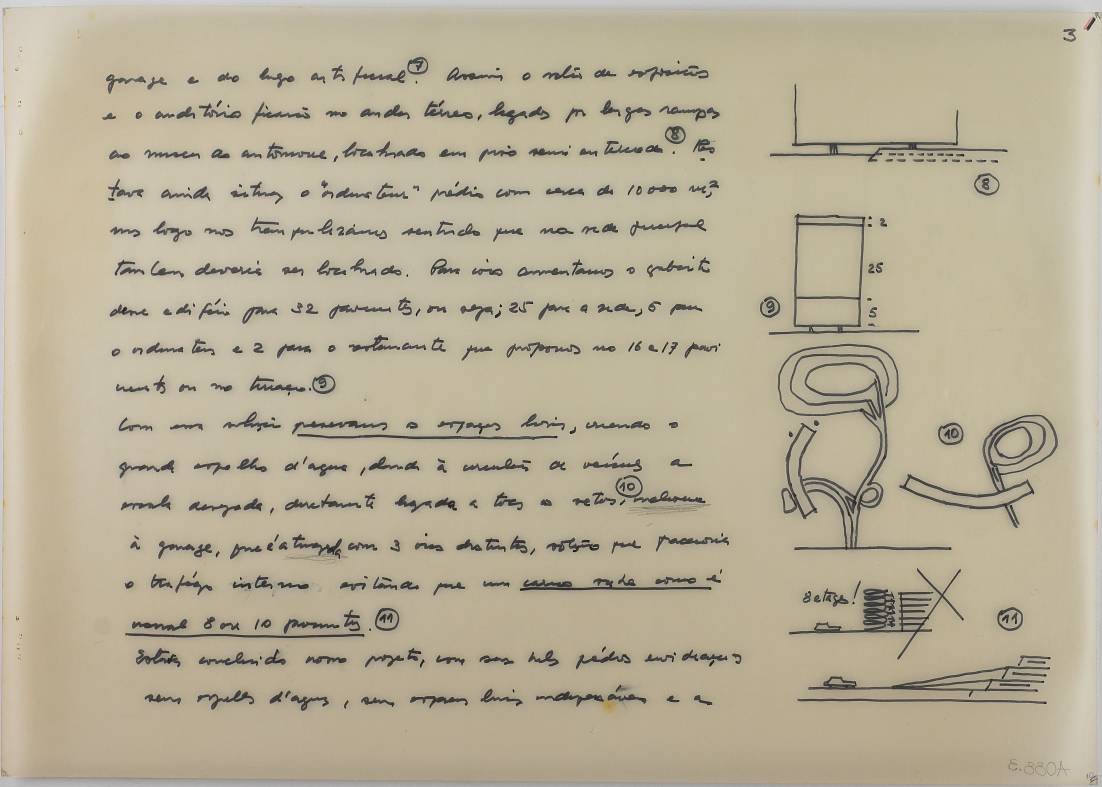 3
garage e do lago artificial. ⑦ Assim o salão de exposições
e o auditório ficarão no andar térreo, ligados por largas rampas
ao museu do automóvel, localizado em piso semi enterrado. ⑧ Res
tava ainda situar o "ordinateur" prédio com cerca de 10 000 m²,
mas logo nos tranquilizámos sentindo que na sede principal
tambem deveria ser localizado. Para isso aumentamos o gabarito
desse edifício para 32 pavimentos, ou seja; 25 para a sede, 5 para
o ordinateur e 2 para o restaurante que propomos no 16 e 17 pavi
mentos ou no terraço. ⑨
Com essa solução preservamos os espaços livres, criando o
grande espelho d'agua, dando à circulação de veículos a
desejada, diretamente ligada a todos os setores, ⑩ inclusive
à garage, que é atingida com 3 vias distintas, solução que
o trafégo interno evitando que um carro suba como é
usual 8 ou 10 pavimentos. ⑪
Estava concluido nosso projeto, com seus três prédios envidraçados
seus espelhos d'agua, seus espaços livres indispensáveis e a
⑧
2
25
5
⑨
⑩
8 etages!
⑪
E.880A